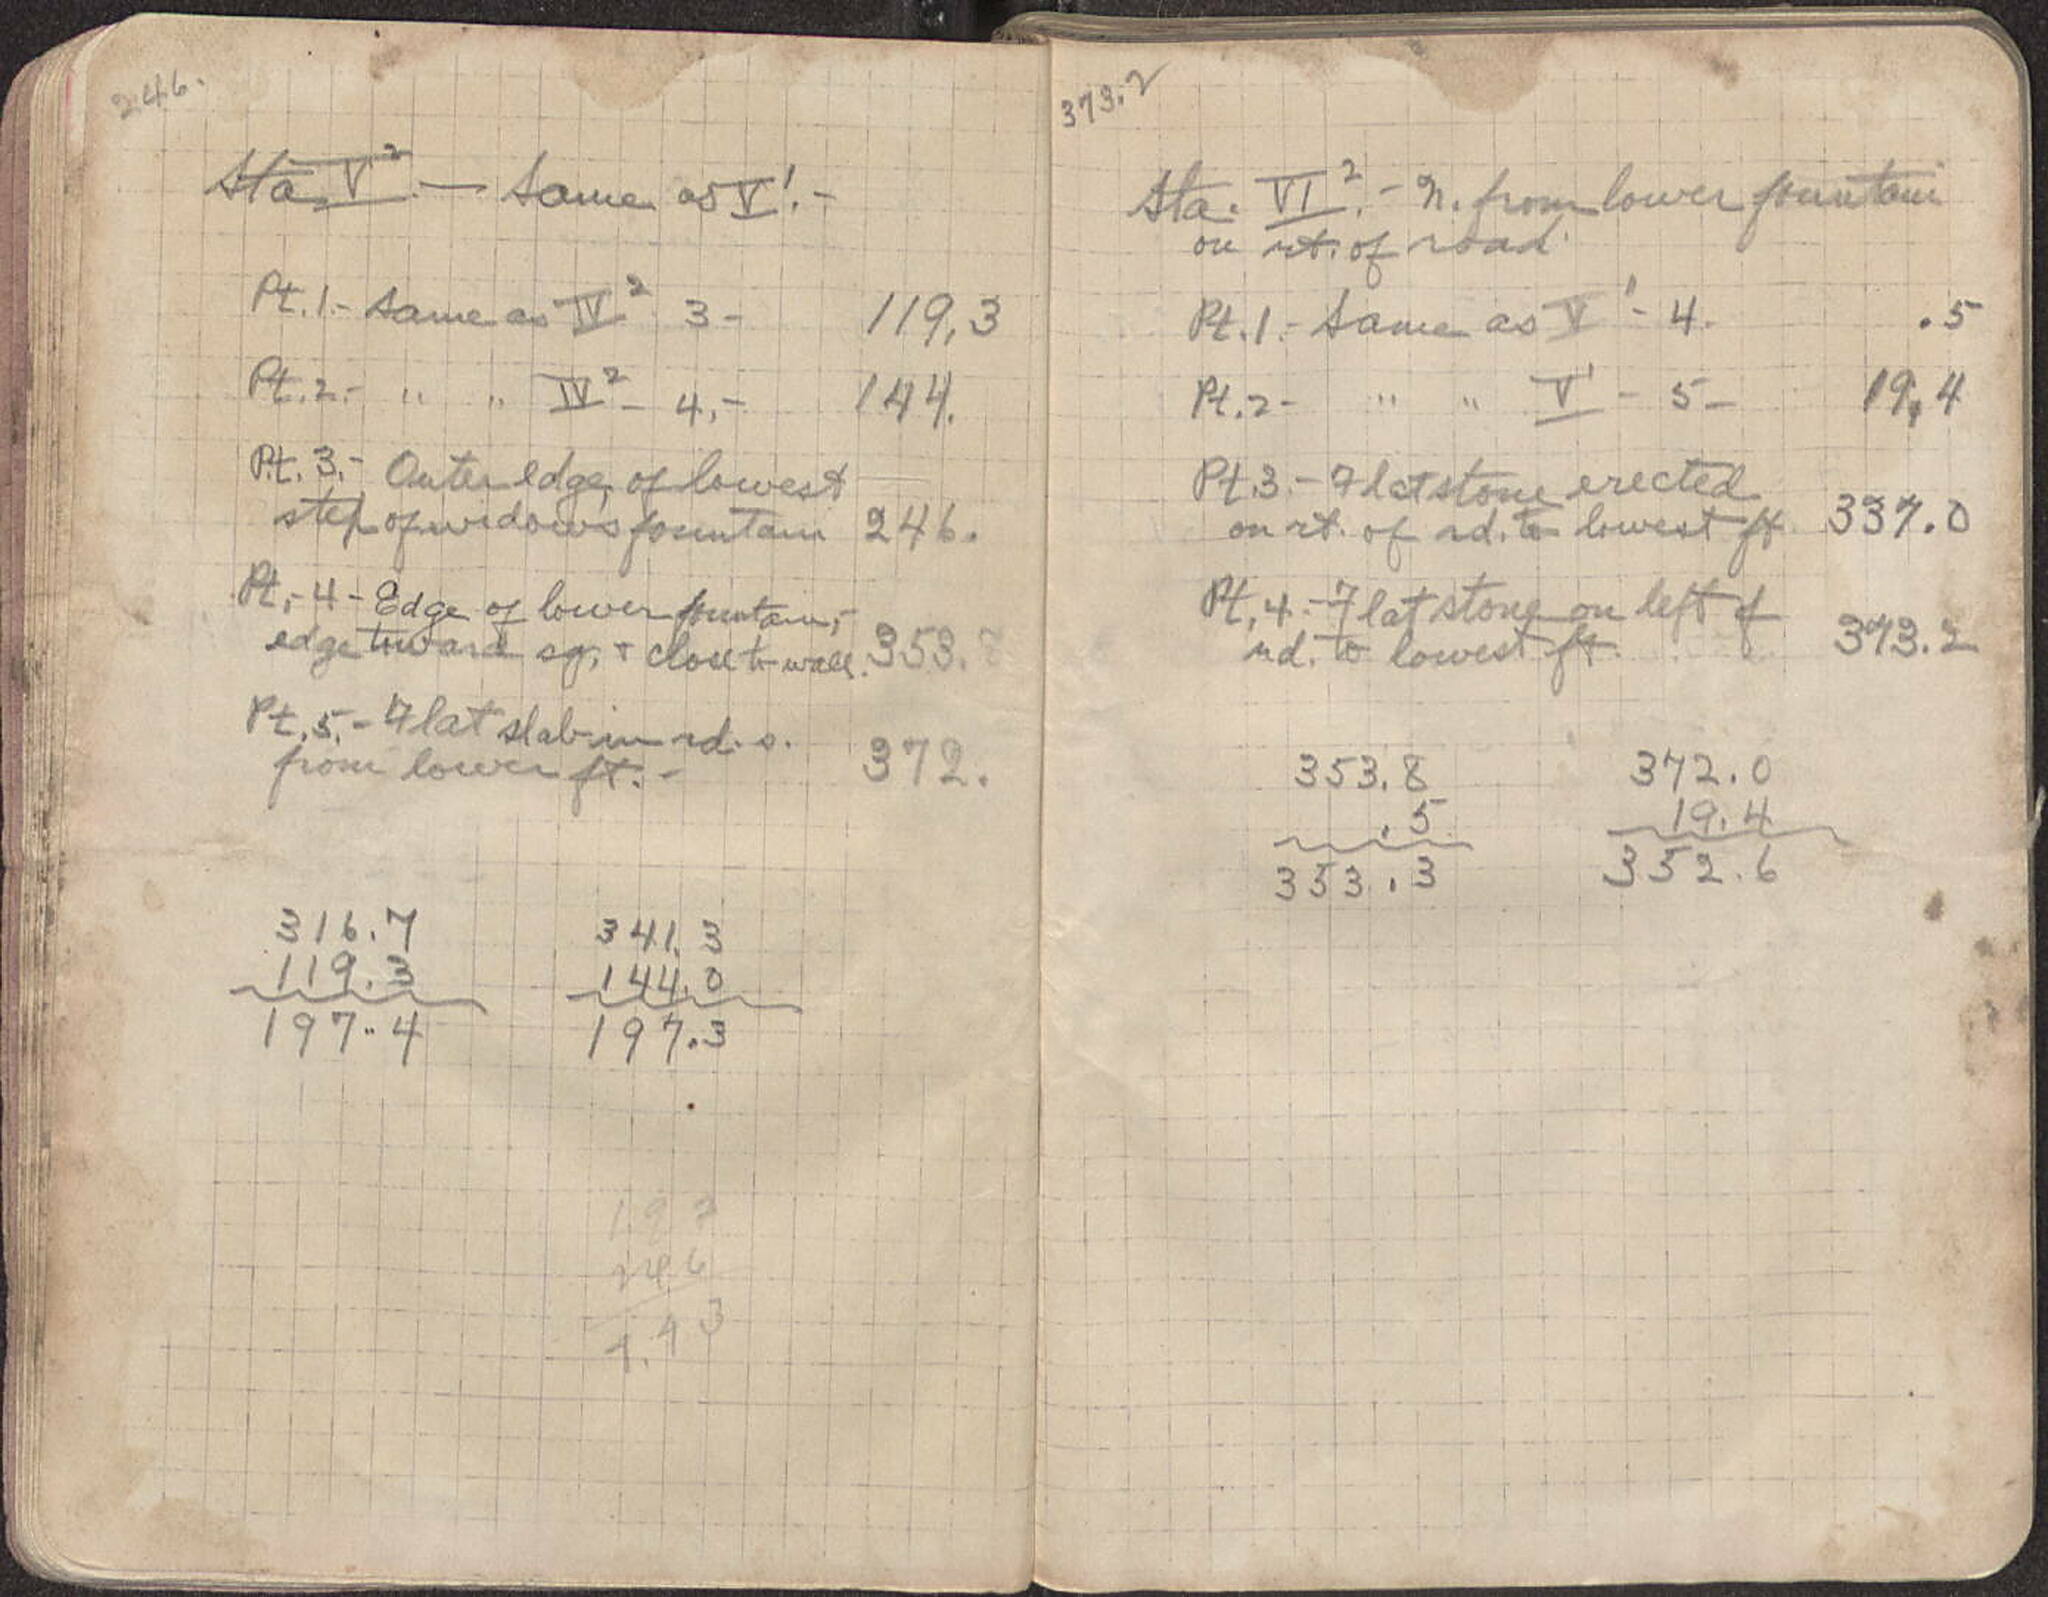 246.
Sta. V² — Same as V'. –
Pt. 1. – Same as IV² 3 – 119,3
Pt. 2. – " " IV² – 4, – 144.
Pt. 3. – Outer edge of lowest
step of widow's fountain 246.
Pt, – 4 – Edge of lower fountain, –
edge toward sq, + close to wall. 353.8
Pt. 5. – Flat slab in rd. s.
from lower ft. – 372.
316.7 341.3
119.3 144.0
197.4 197.3
246
4.43
373.2
Sta. VI². – N. from lower fountain
on rt. of road
Pt. 1. – Same as V' – 4. .5
Pt. 2 – " " V' – 5 – 19,4
Pt. 3. – Flat stone erected
on rt. of rd. to lowest ft 337.0
Pt, 4. – Flat stone on left of
rd. to lowest ft. 373.2
353.8 372.0
.5 19.4
353.3 352.6